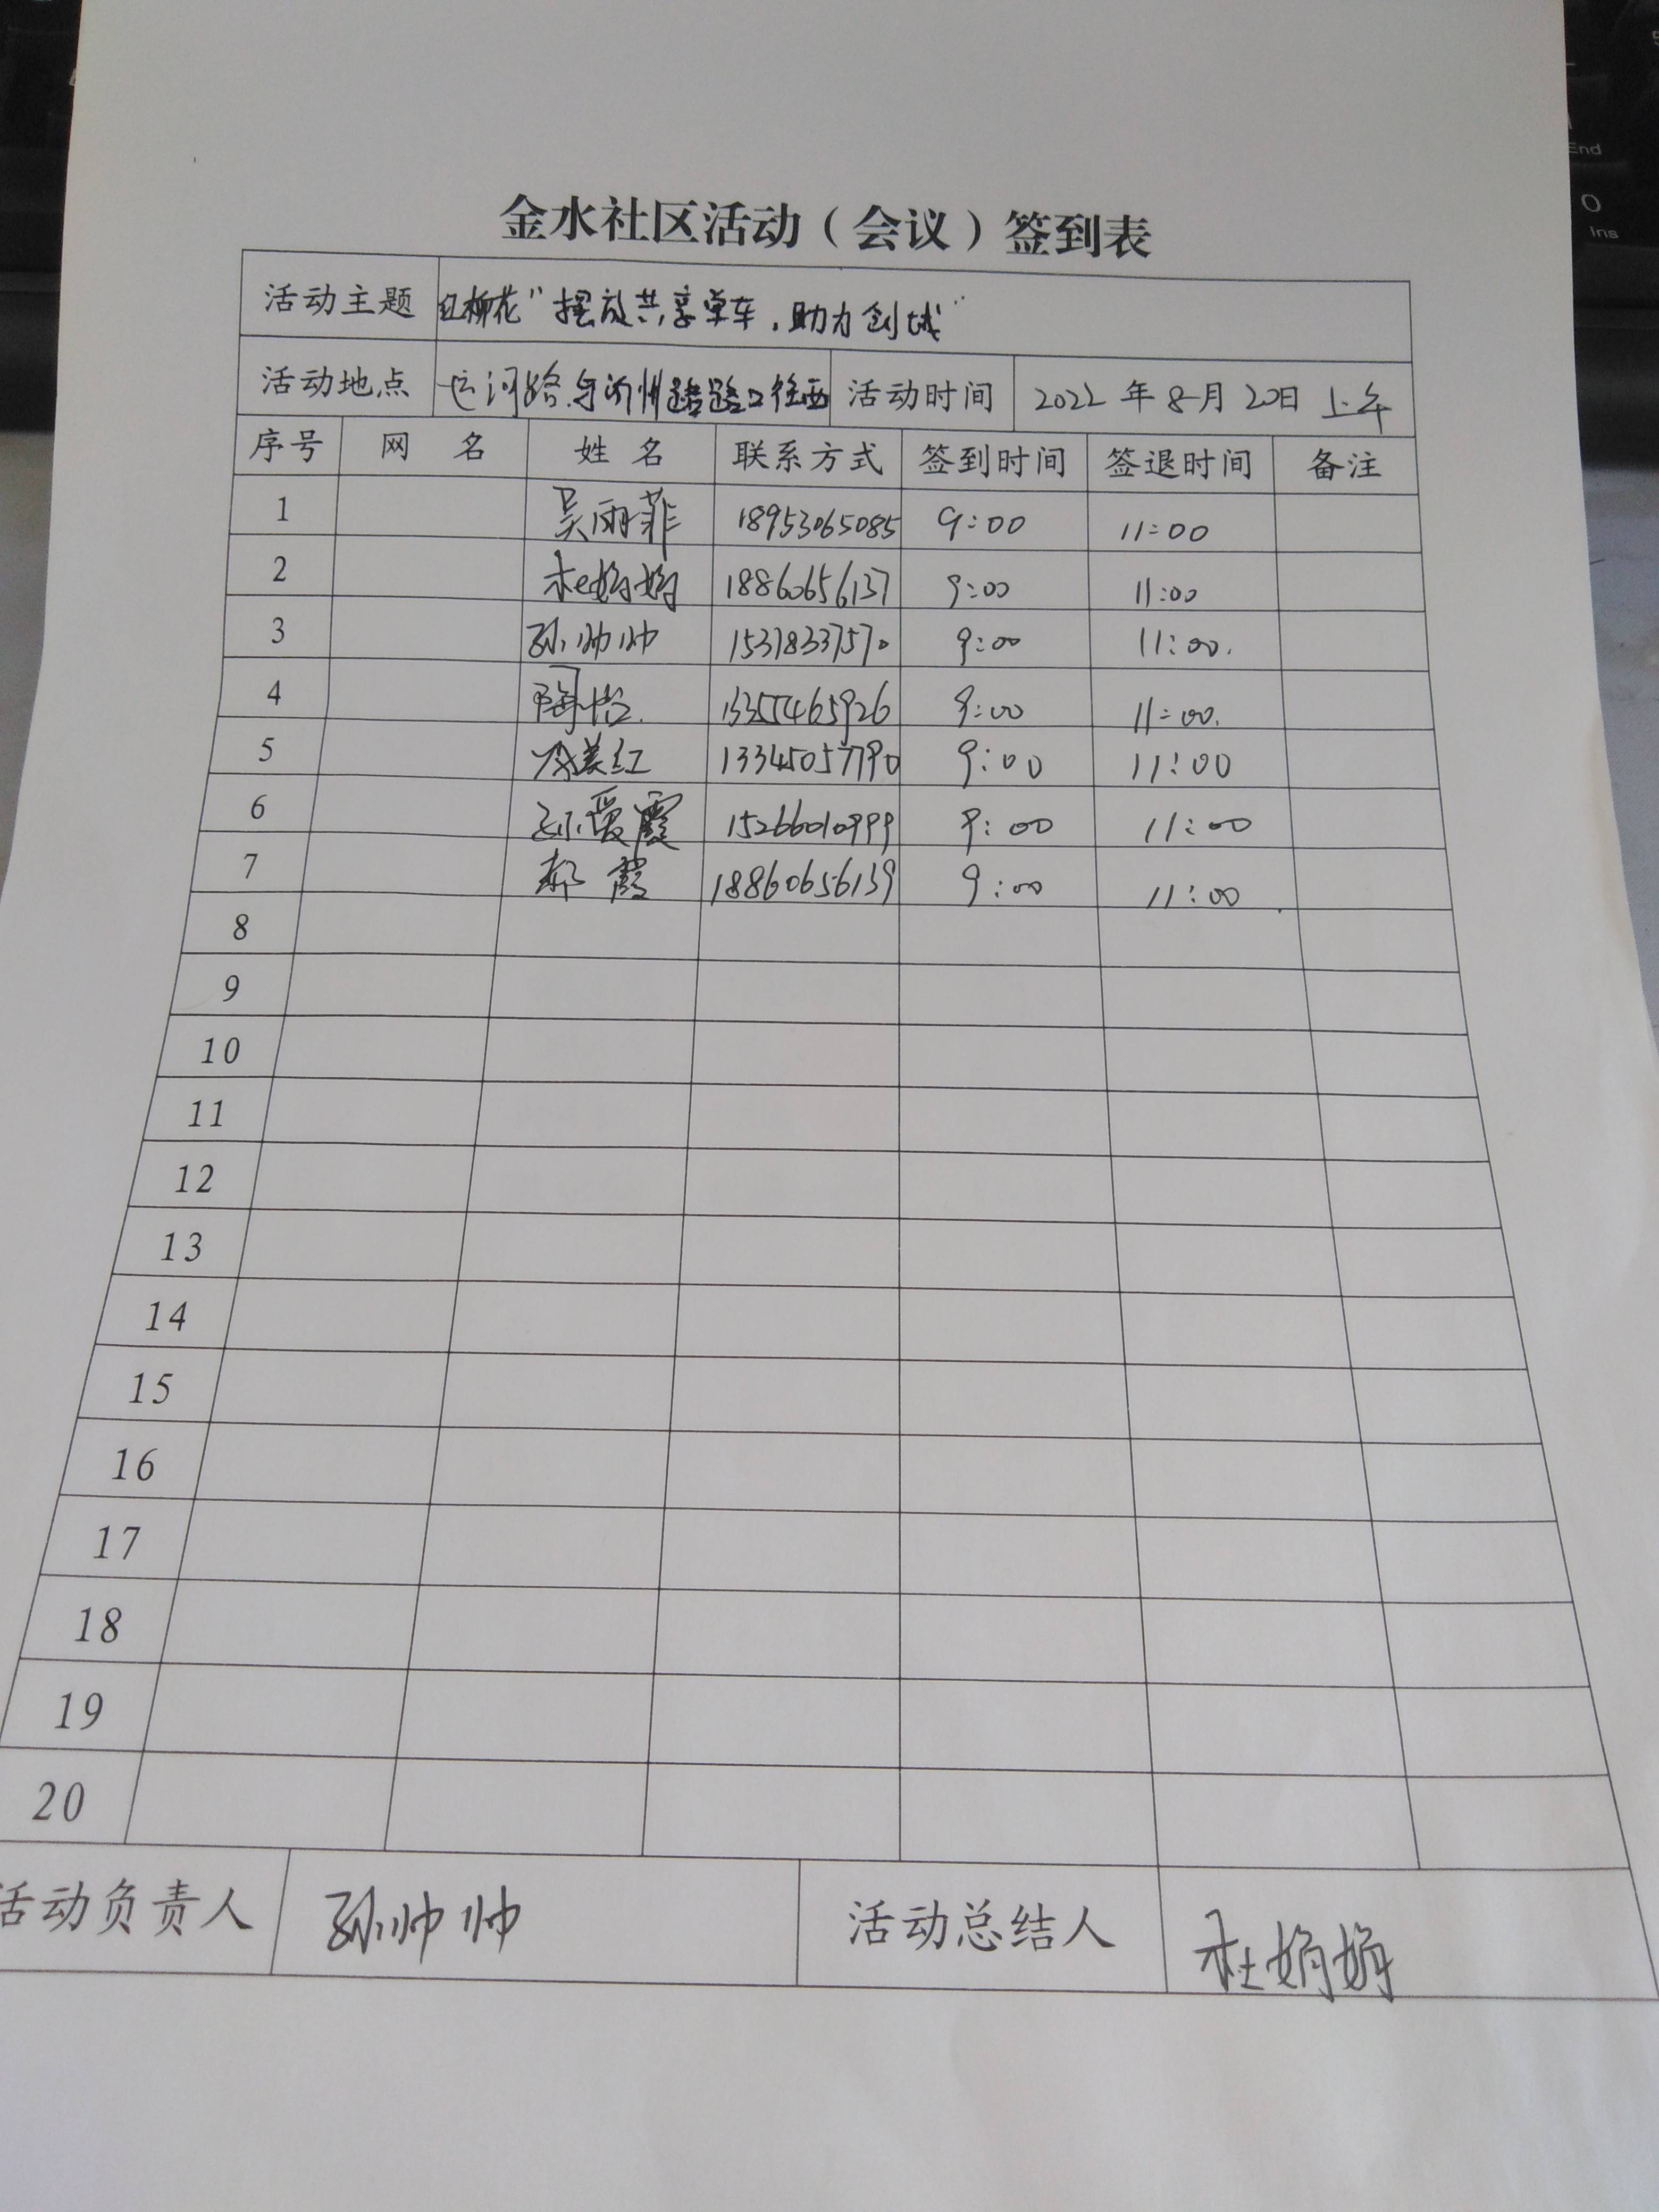 金水社区活动（会议）签到表
活动主题 红柳花"摆放共享单车，助力创城"
活动地点 运河路与沂州路路口往西 活动时间 2022年8月20日 上午
序号 网 名 姓 名 联系方式 签到时间 签退时间 备注
1 吴雨菲 18953065085 9:00 11:00
2 杜娟娟 18860656137 9:00 11:00
3 孙帅帅 15318337570 9:00 11:00.
4 陶 13355465926 9:00 11:00.
5 美红 13345057790 9:00 11:00
6 孙爱霞 15266010999 9:00 11:00
7 郝霞 18860656139 9:00 11:00
8
9
10
11
12
13
14
15
16
17
18
19
20
活动负责人 孙帅帅 活动总结人 杜娟娟
End
O
Ins